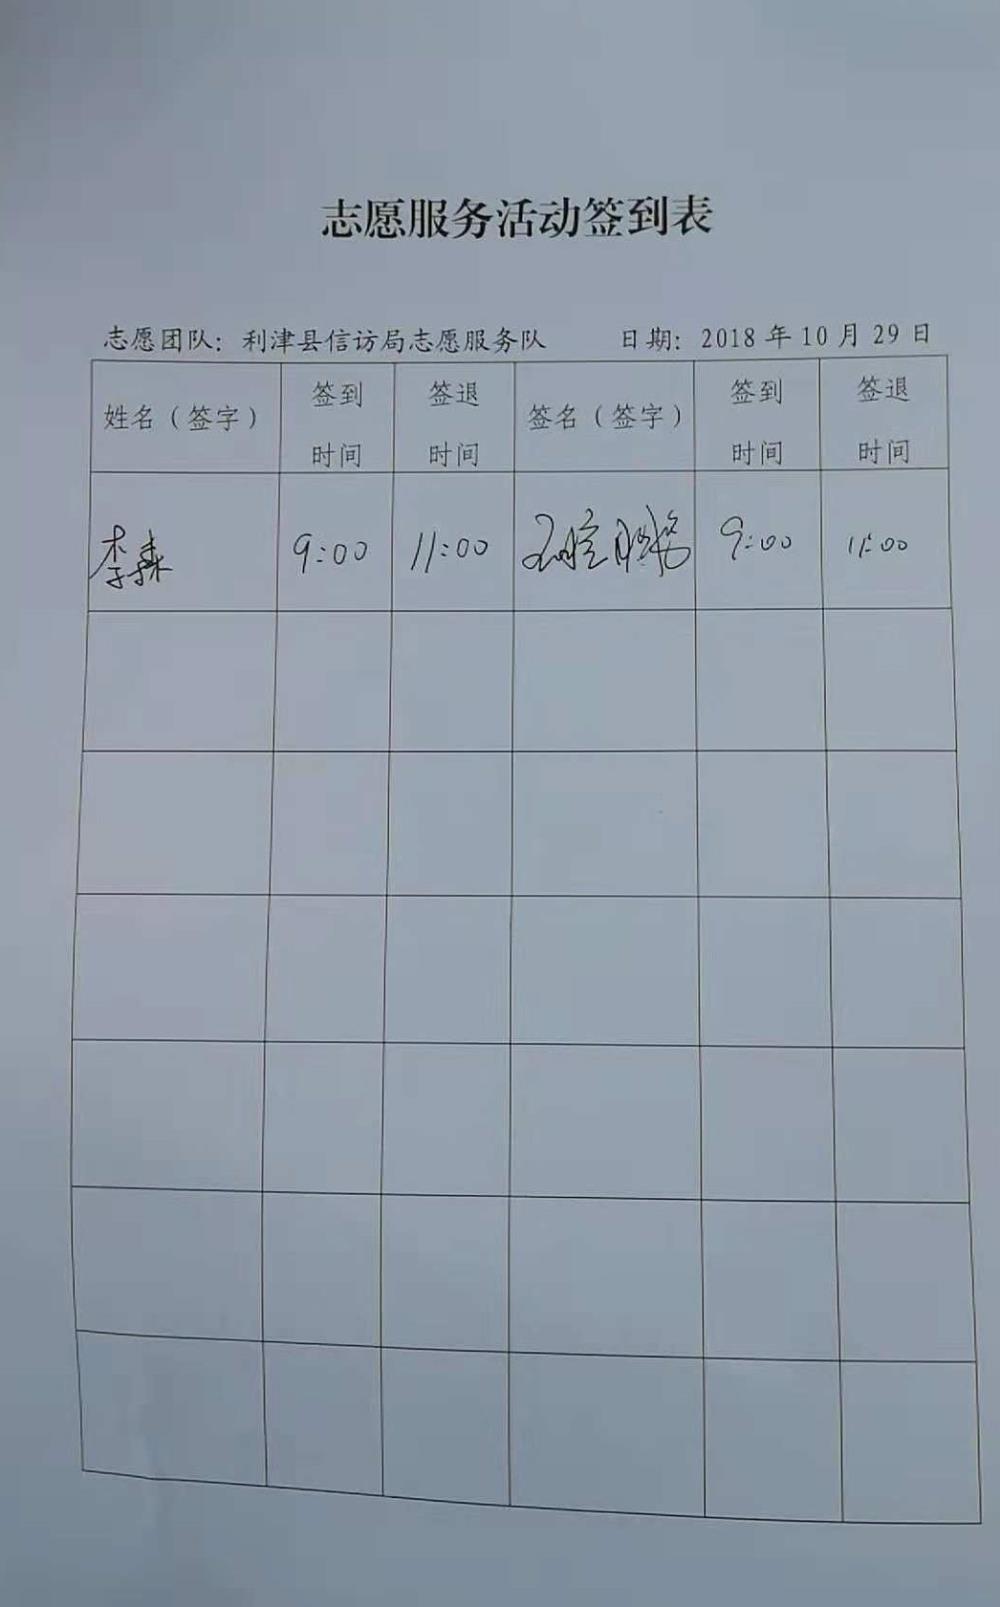 志愿服务活动签到表
志愿团队：利津县信访局志愿服务队 日期：2018年10月29日
姓名（签字） 签到时间 签退时间 签名（签字） 签到时间 签退时间
李森 9:00 11:00 9:00 11:00